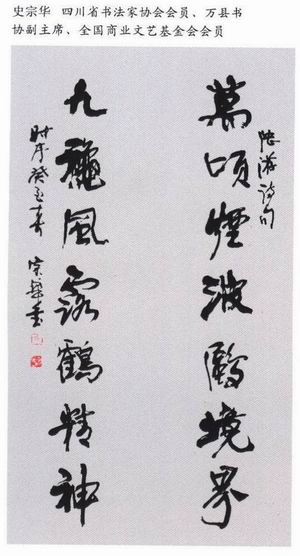 史宗华 四川省书法家协会会员、万县书
协副主席、全国商业文艺基金会会员
萬頃煙波鷗境界
陸游詩句
九龝風露鶴精神
时序癸酉春 宗華書